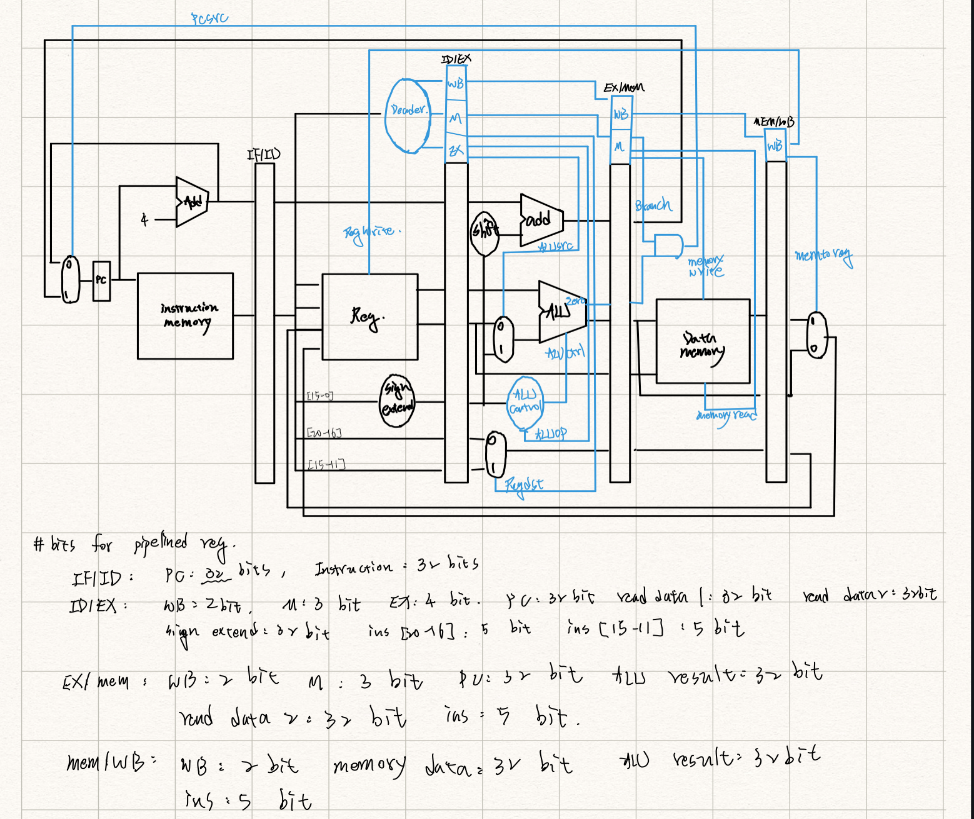 PCsrc
ID/EX
WB
Decoder.
M
EX
EX/MEM
WB
M
MEM/WB
WB
IF/ID
Add
4
Regwrite.
shift
add
ALUsrc
Branch
memory
write
memtoreg
0
1
PC
instruction
memory
Reg.
0
1
Zero
ALU
ALUctrl
Data
memory
1
0
sign
extend
[15-0]
ALU
Control
ALUOP
memoryread
[20-16]
[15-11]
0
1
Regdst
# bits for pipelined reg.
IF/ID : PC: 32 bits, Instruction = 32 bits
ID/EX : WB = 2 bit, M : 3 bit EX: 4 bit. PC: 32 bit read data 1: 32 bit read data 2: 32 bit
sign extend: 32 bit ins [20-16] : 5 bit ins [15-11] : 5 bit
EX/mem : WB: 2 bit M : 3 bit PC: 32 bit ALU result: 32 bit
read data 2: 32 bit ins : 5 bit.
mem/WB : WB : 2 bit memory data: 32 bit ALU result: 32 bit
ins: 5 bit